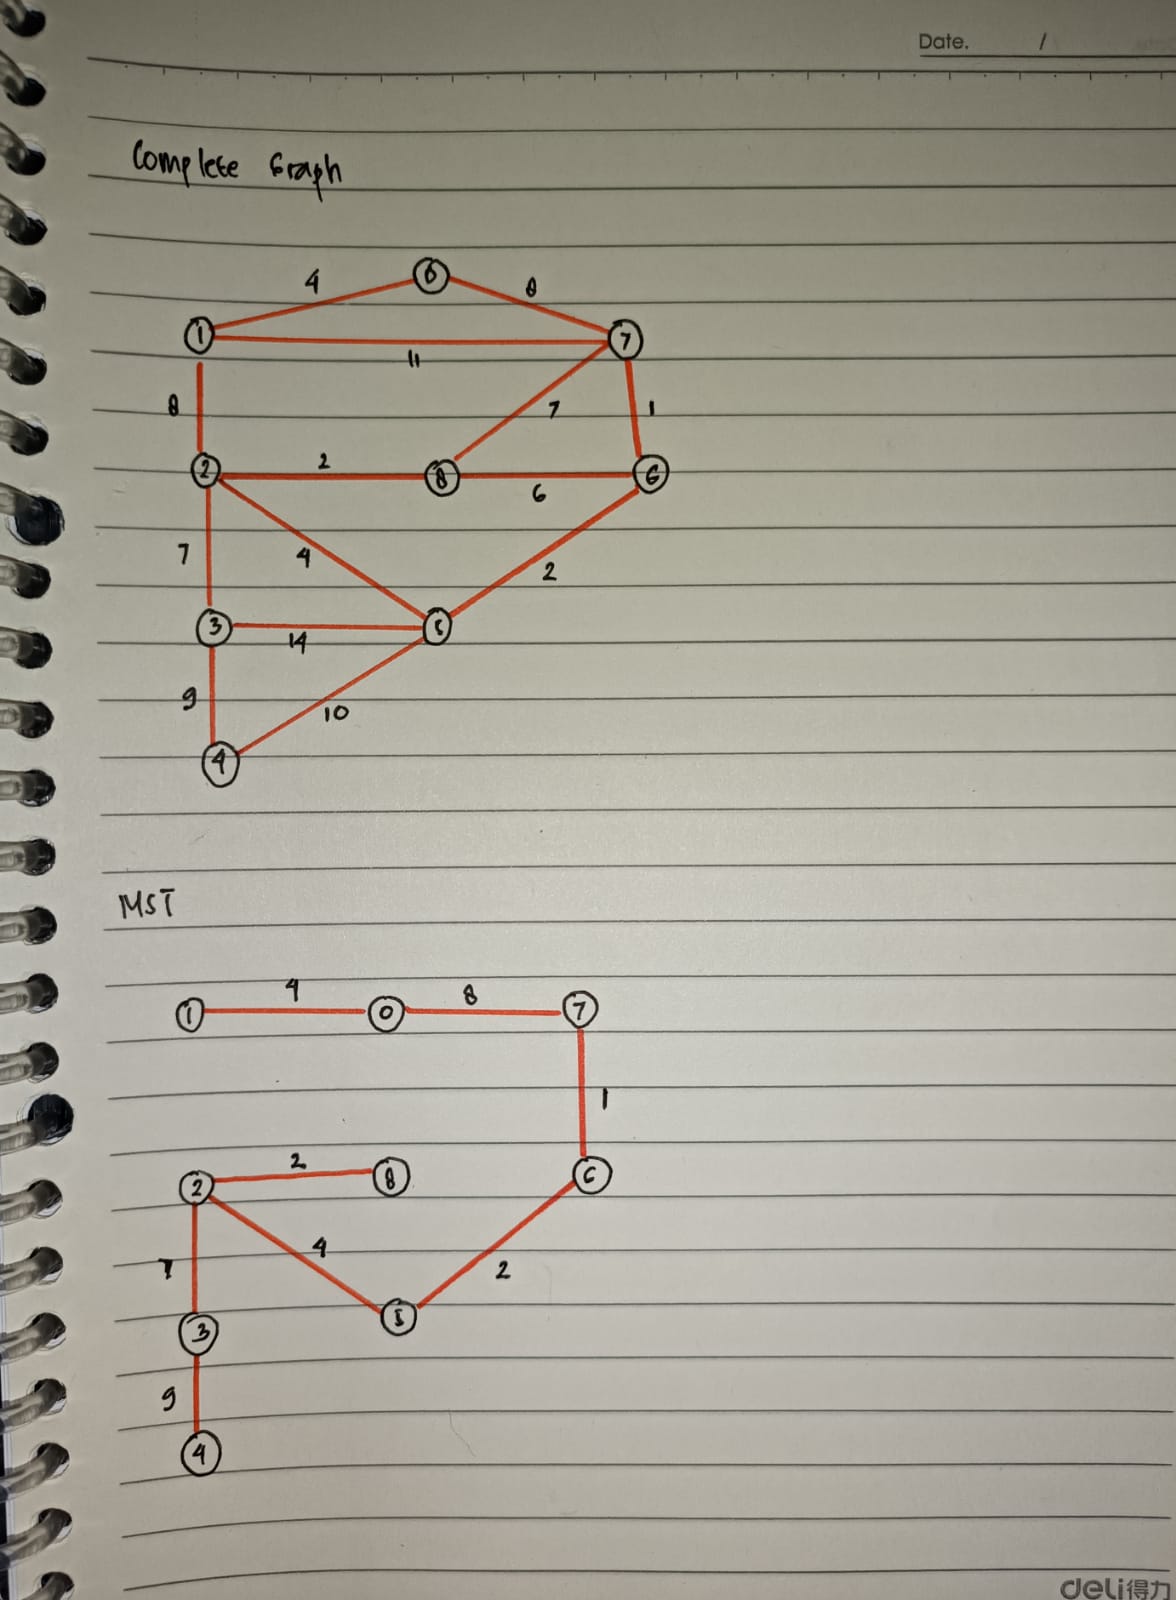 Date. /
Complete Graph
4 0 8
1 7
11
8 7 1
2 2 8 6
6
7 4 2
3 14 5
9 10
4
MST
1 4 0 8 7
1
2 2 8 6
7 4 2
3 5
9
4
deli得力